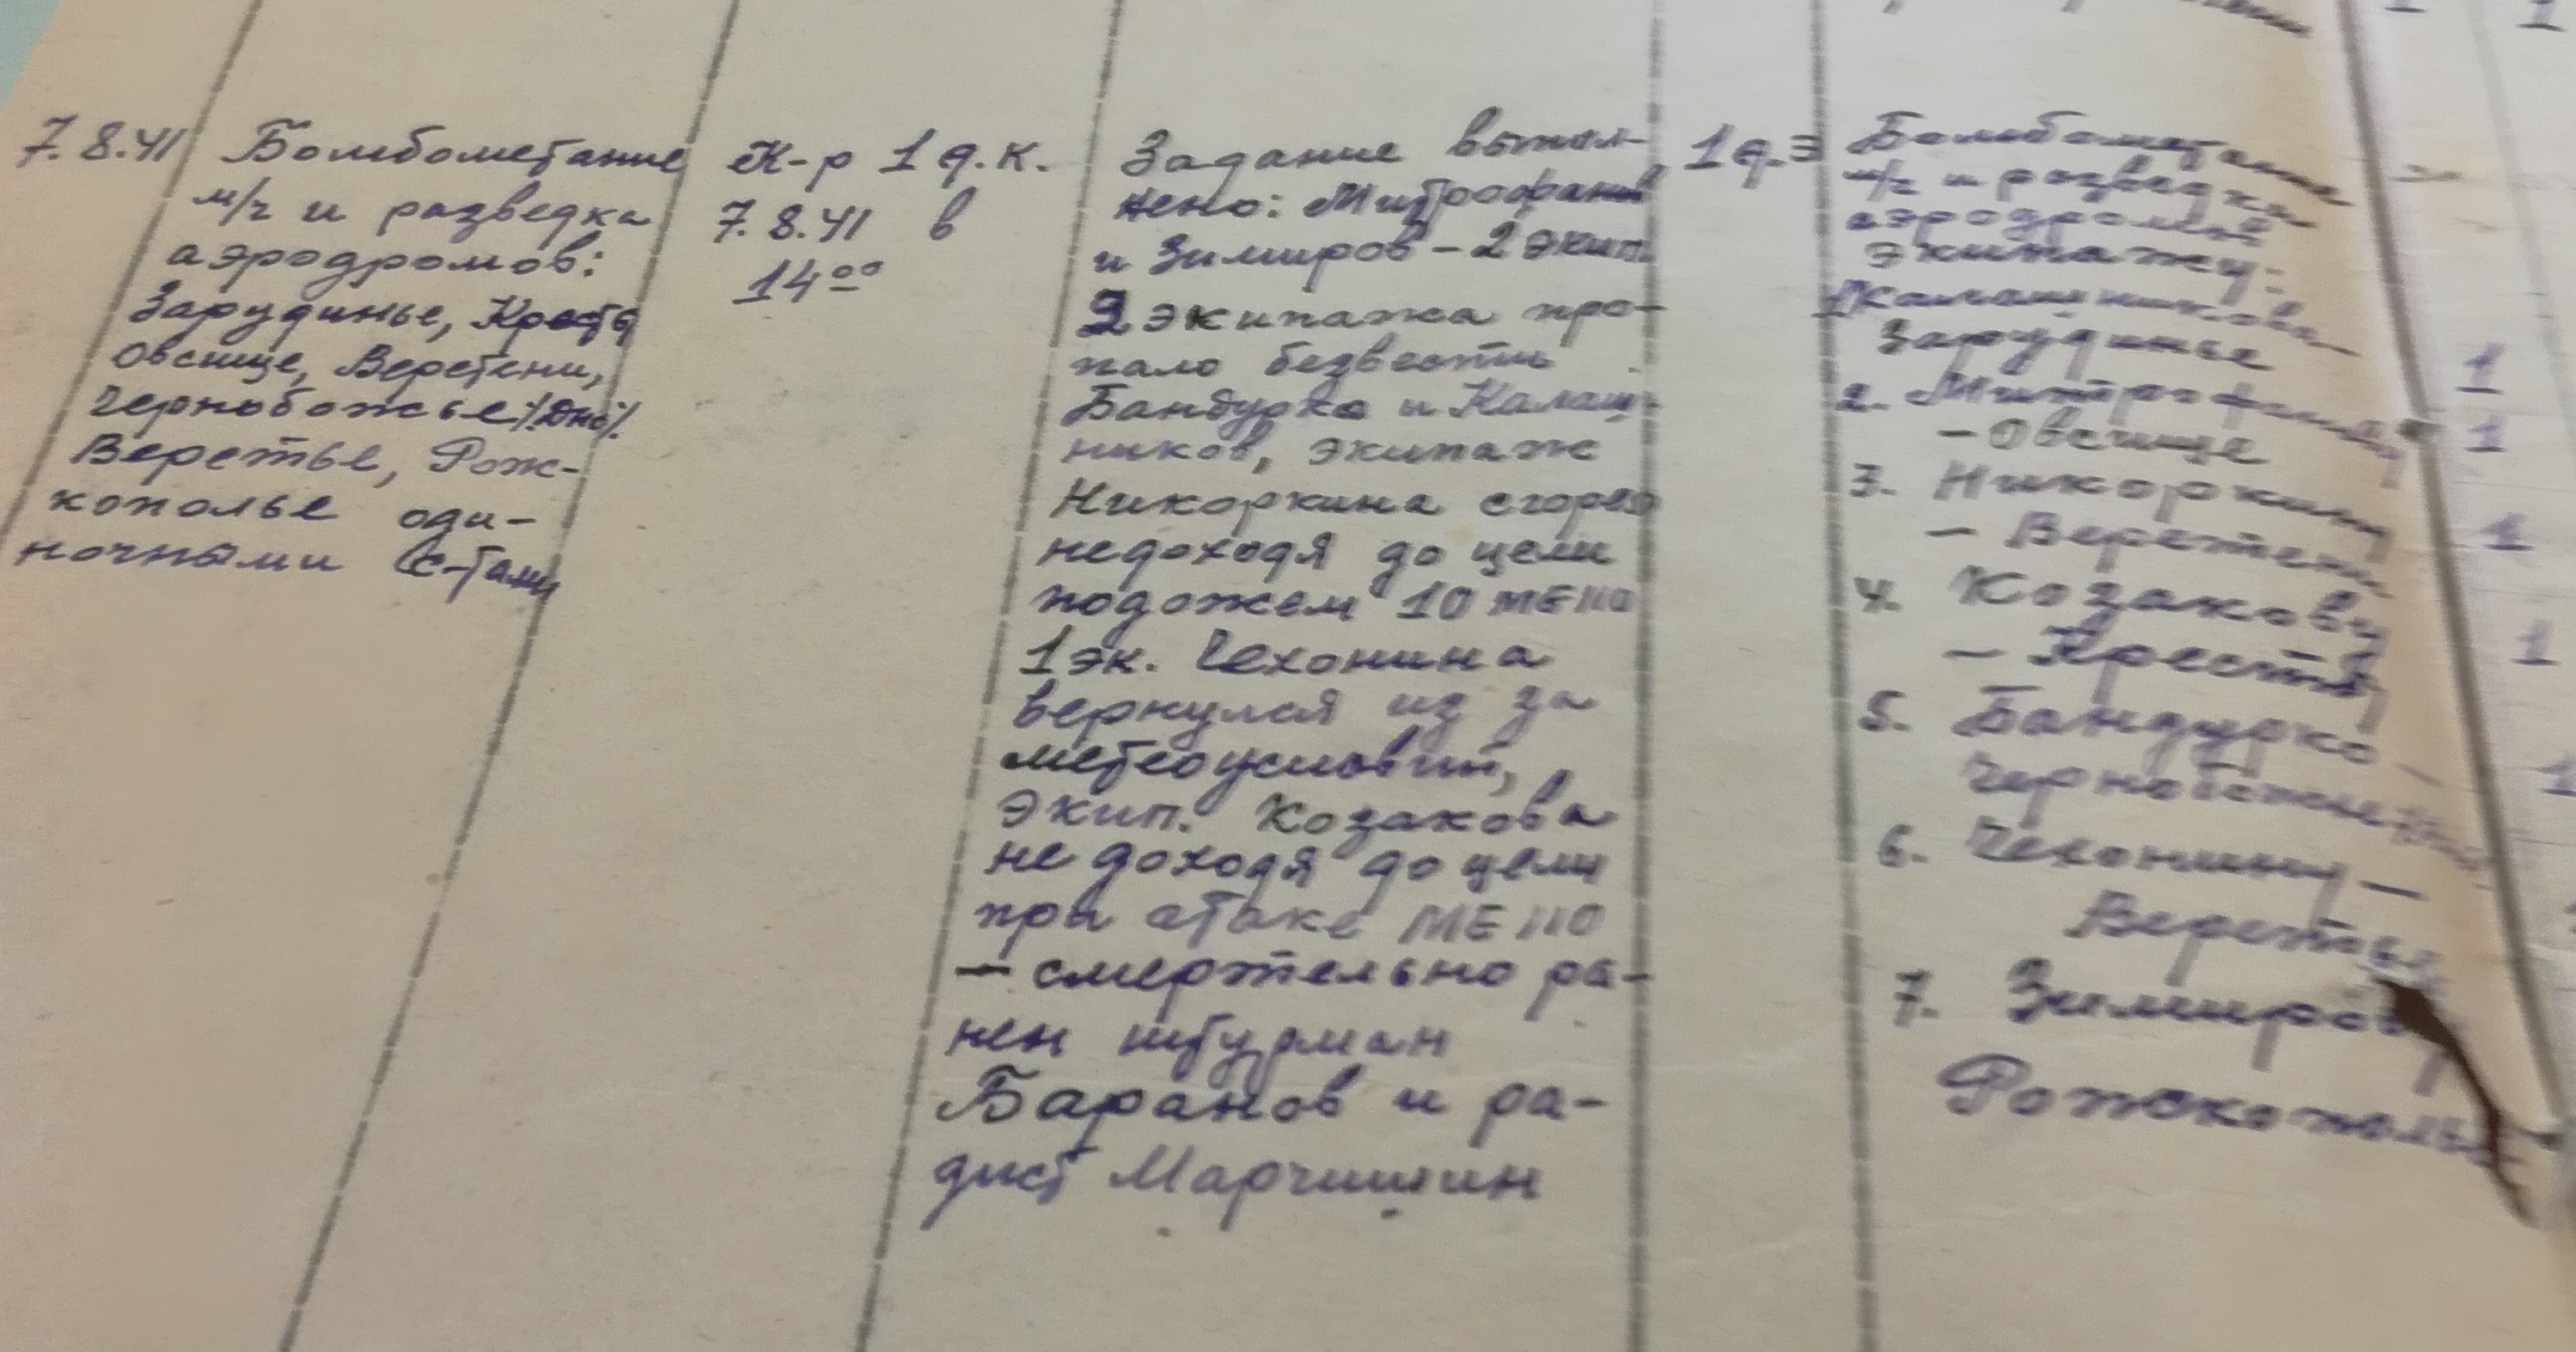 7.8.41
Бомбометание
м/ч и разведка
аэродромов:
Зарудинье, Кресты
Овсище, Веретени,
Чернобожье /Дно/.
Веретье, Рож-
кополье оди-
ночными с-тами
К-р 1 д.к.
7.8.41 в
14⁰⁰
Задание выпол-
нено: Митрофанов
и Зимиров - 2 экип.
2 экипажа про-
пало безвести
Бандурко и Калаш-
ников, экипаж
Никоркина сгорел
недоходя до цели
подожжем 10 МЕ110
1 эк. Чехонина
вернулся из за
метеоусловий,
экип. Козакова
не доходя до цели
при атаке МЕ 110
— смертельно ра-
нен штурман
Баранов и ра-
дист Марчишин
1 д.э
Бомбометание
м/ч и разведки
аэродромов
экипажу:
1 Калашникову —
Зарудинье
2. Митрофанову
- Овсище
3. Никоркину
- Веретени
4. Козакову
- Кресты
5. Бандурко —
Чернобожье
6. Чехонину —
Веретье
7. Зимирову
Рожскополье
1
1
1
1
1